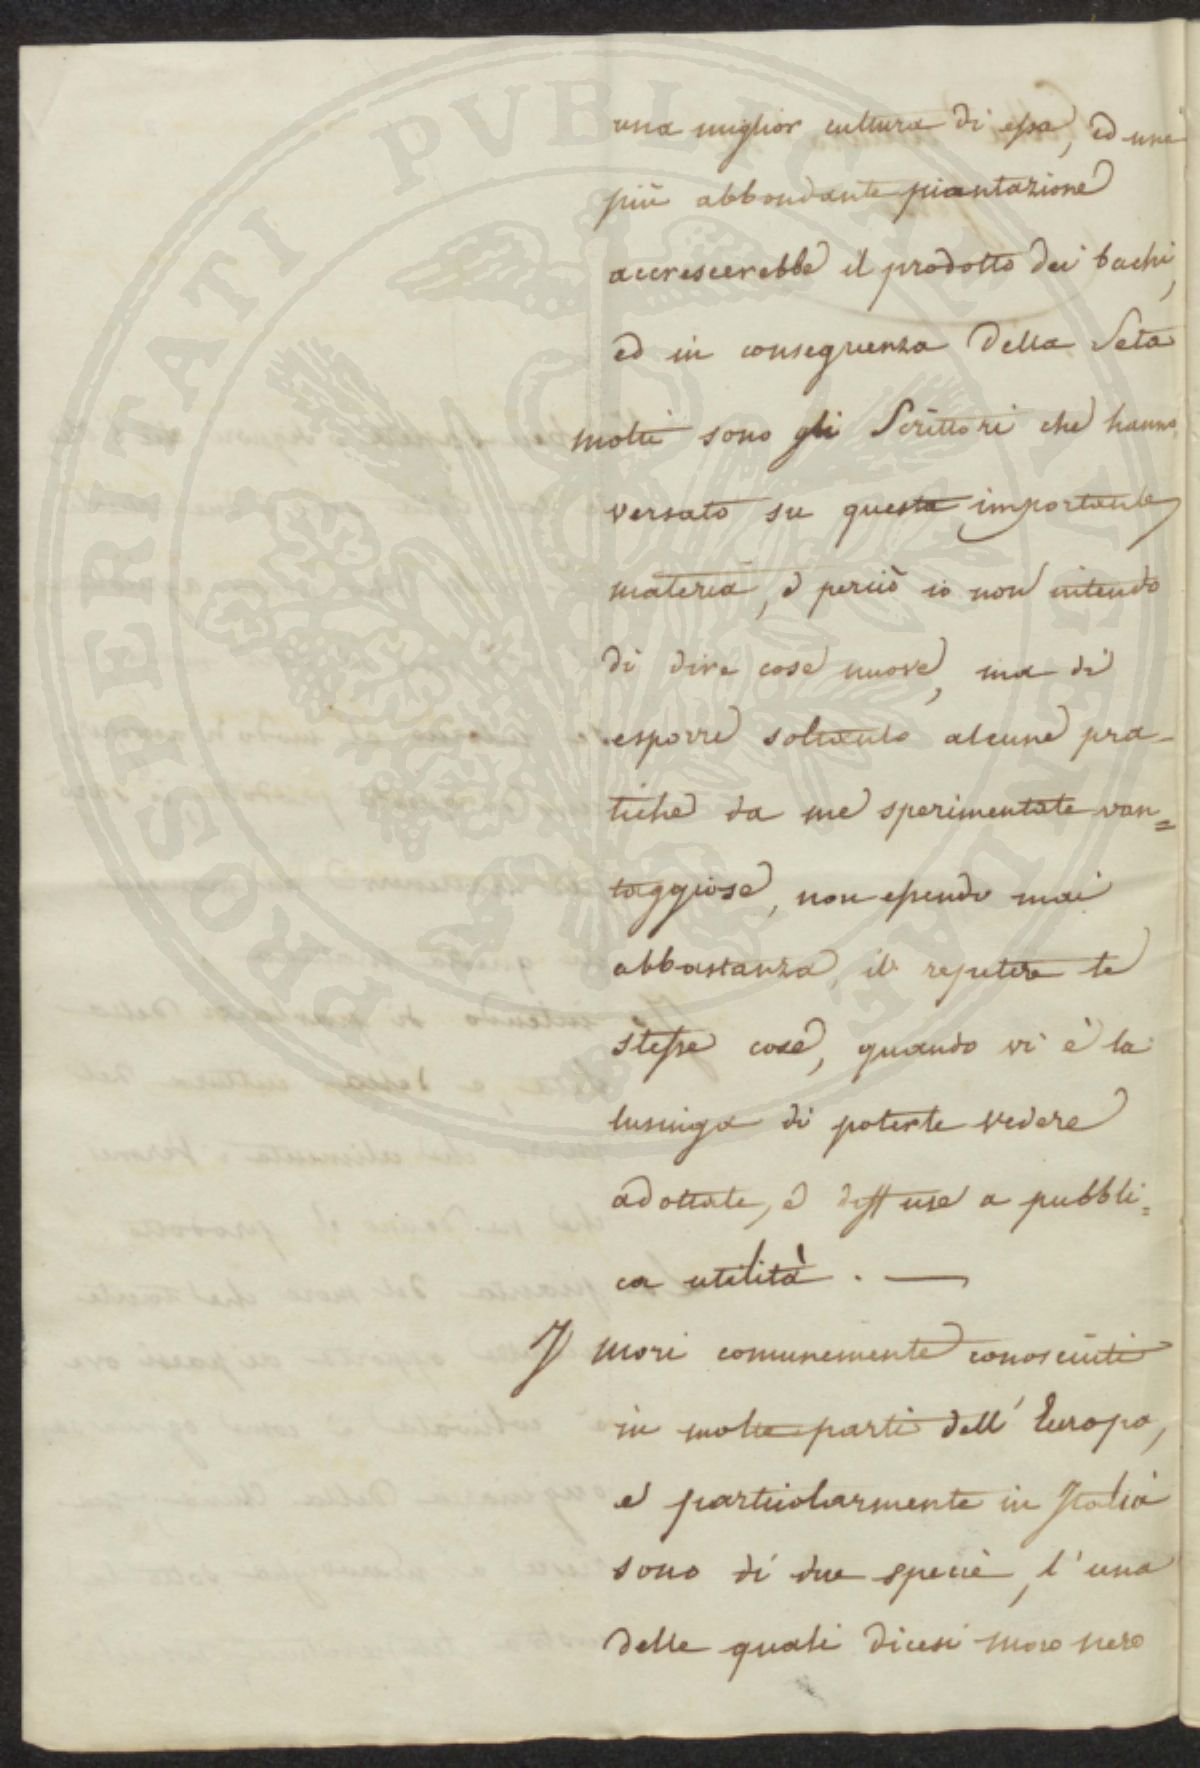 una miglior cultura di essa, ed una
più abbondante piantazione
accrescerebbe il prodotto dei bachi,
ed in conseguenza della Seta
molti sono gli Scrittori che hanno
versato su questa importante
materia, e perciò io non intendo
di dire cose nuove, ma di
esporre soltanto alcune pra-
tiche da me sperimentate van=
taggiose, non essendo mai
abbastanza il repetere le
stesse cose, quando vi è la
lusinga di poterle vedere
adottate, e diffuse a pubbli=
ca utilità . —
I mori comunemente conosciuti
in molte parti dell' Europa,
e particolarmente in Italia
sono di due specie, l'una
delle quali dicesi moro nero
PROSPERITATI PUBLICAE